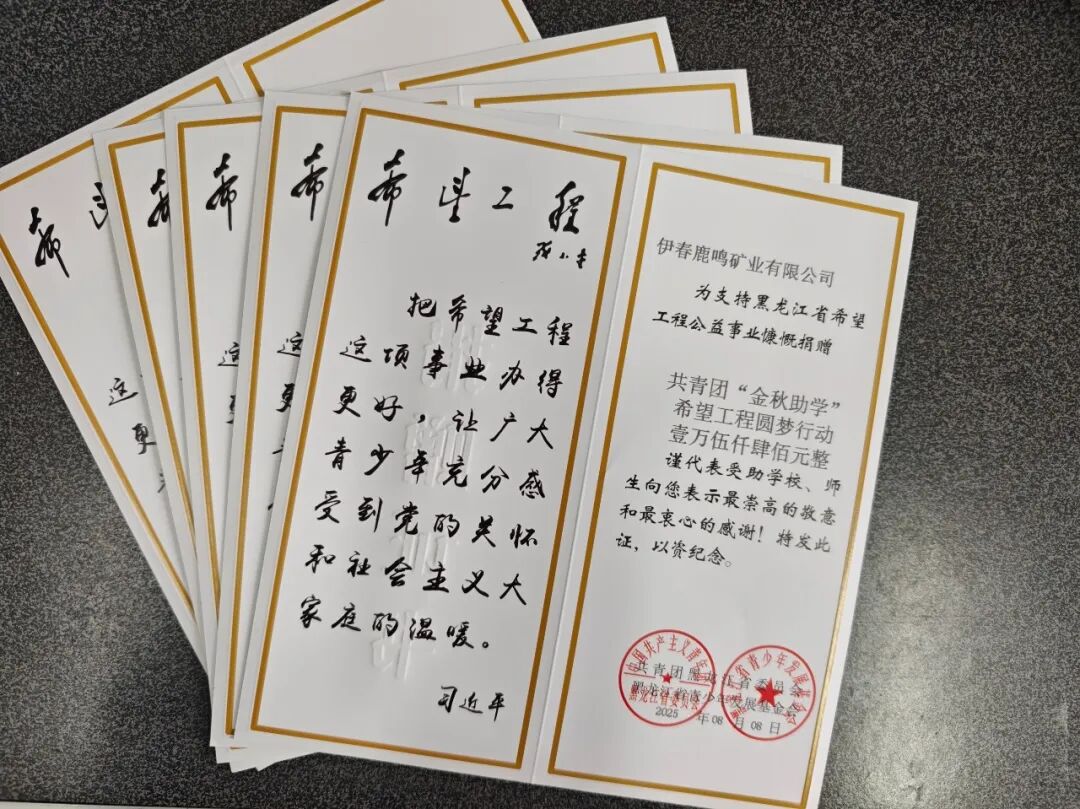 希望工程
邓小平
把希望工程
这项事业办得
更好，让广大
青少年充分感
受到党的关怀
和社会主义大
家庭的温暖。
习近平
伊春鹿鸣矿业有限公司
为支持黑龙江省希望
工程公益事业慷慨捐赠
共青团“金秋助学”
希望工程圆梦行动
壹万伍仟肆佰元整
谨代表受助学校、师
生向您表示最崇高的敬意
和最衷心的感谢！特发此
证，以资纪念。
共青团黑龙江省委员会
黑龙江省青少年发展基金会
2025 年 08 月 08 日
希
这
更
希
希
这
更
希
这